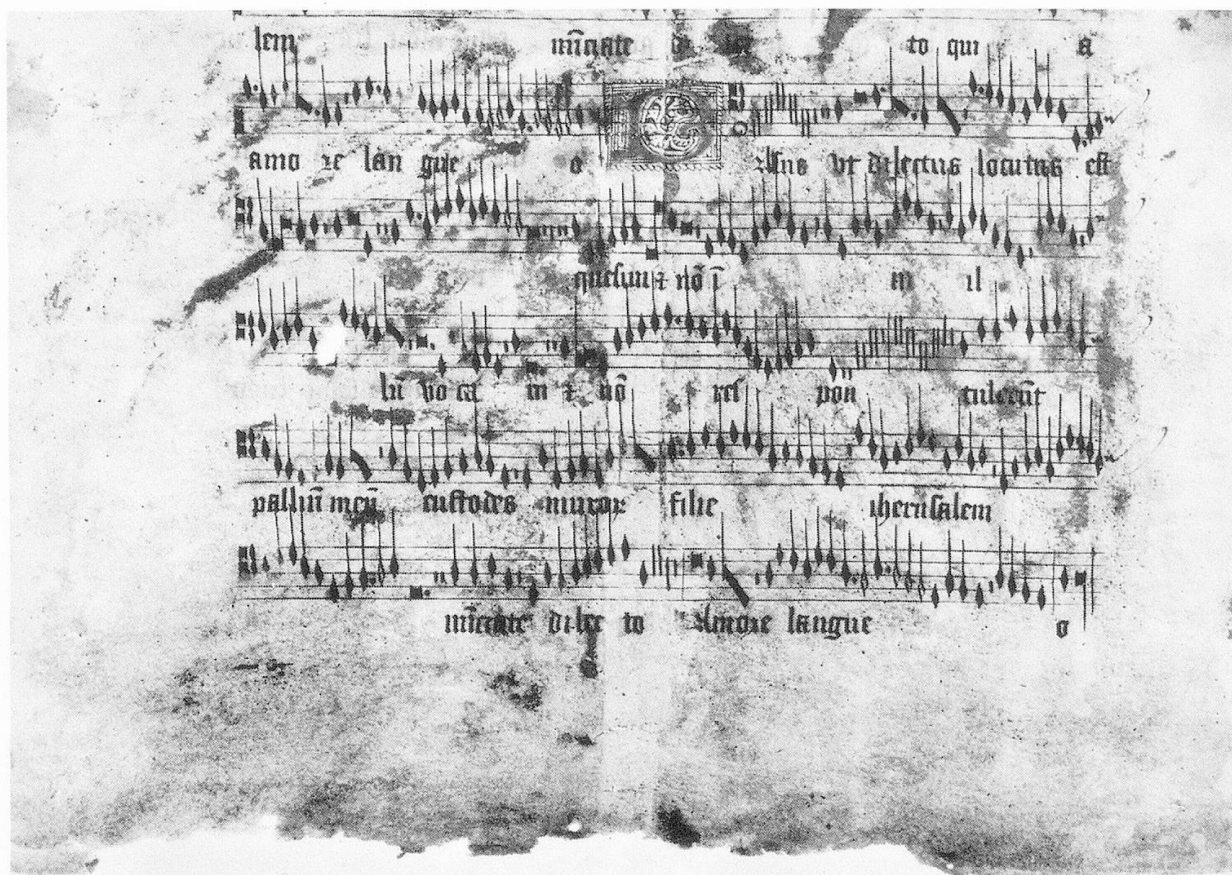 lem nūciate to qui a
amo re lan gue o Esus ut dilectus locutus est
quesiui ⁊ nō ī m il
lū vo ca m ⁊ nō res pon tulerūt
palliū meū custodes muror filie iherusalem
nūciate dilec to Amore langue o